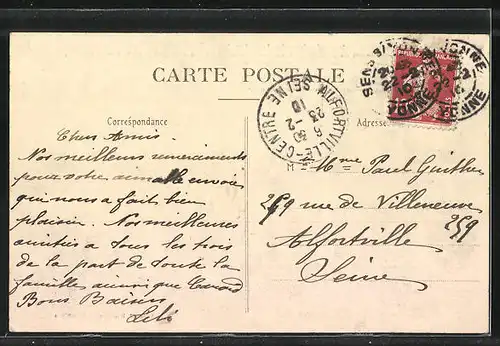 CARTE POSTALE
Correspondance
Adresse
SENS S/YONNE
YONNE
ALFORTVILLE-CENTRE
SEINE
6 30
23 -2
10
Chers Amis.
Nos meilleurs remerciements
pour votre aimable envoi
qui nous a fait bien
plaisir. Nos meilleures
amitiés a tous les trois
de la part de toute la
famille ainsi que
Bons Baisers
Lili
M = Mme Paul
259 rue de Villeneuve
259
Alfortville
Seine